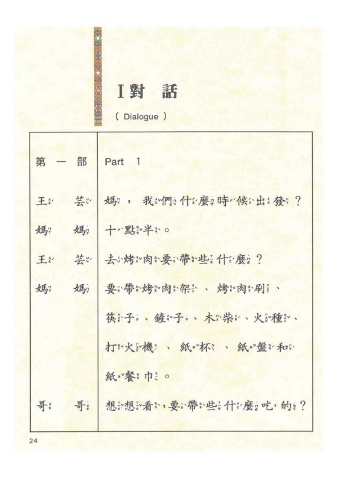 I 對 話
( Dialogue )
第 一 部 Part 1
王 芸 媽，我們什麼時候出發？
媽 媽 十點半。
王 芸 去烤肉要帶些什麼？
媽 媽 要帶烤肉架、烤肉刷、
筷子、鏟子、木柴、火種、
打火機、紙杯、紙盤和
紙餐巾。
哥 哥 想想看，要帶些什麼吃的？
24